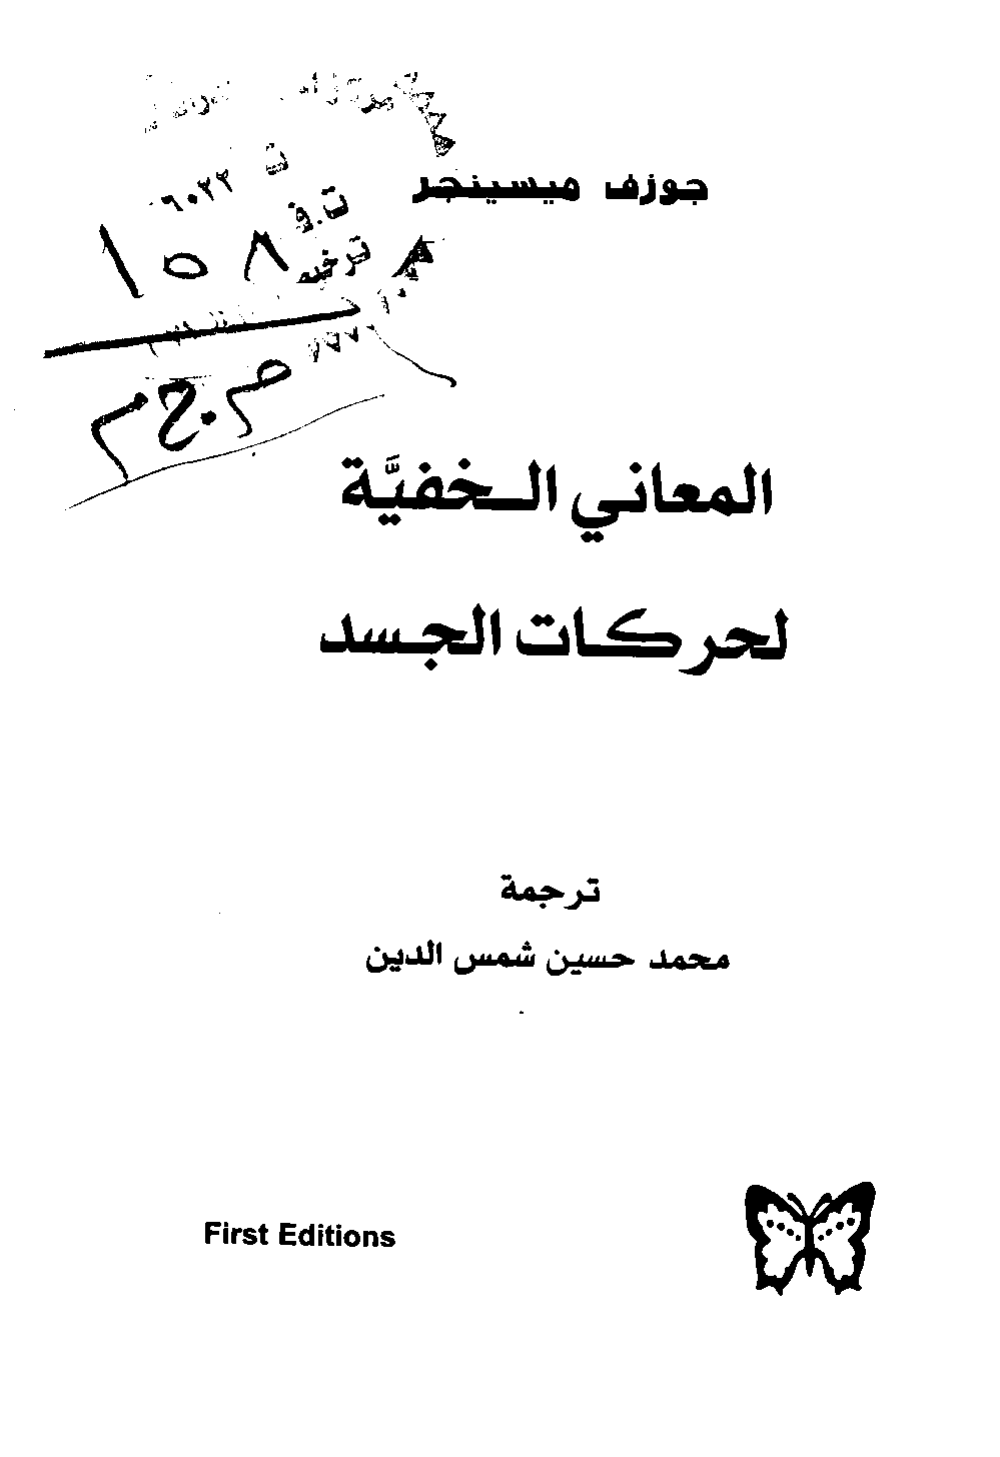 جوزف ميسينجر
١٥٨
المعاني الخفيَّة
لحركات الجسد
ترجمة
محمد حسين شمس الدين
First Editions